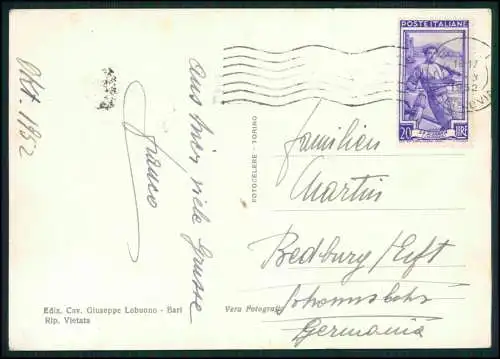 Okt. 1952
aus hier, viele Grüsse
Franco
Ediz. Cav. Giuseppe Lobuono - Bari
Rip. Vietata
FOTOCELERE - TORINO
Vera Fotografia
POSTE ITALIANE
20 LIRE
Familien
Martin
Bedburg/Erft
Germania